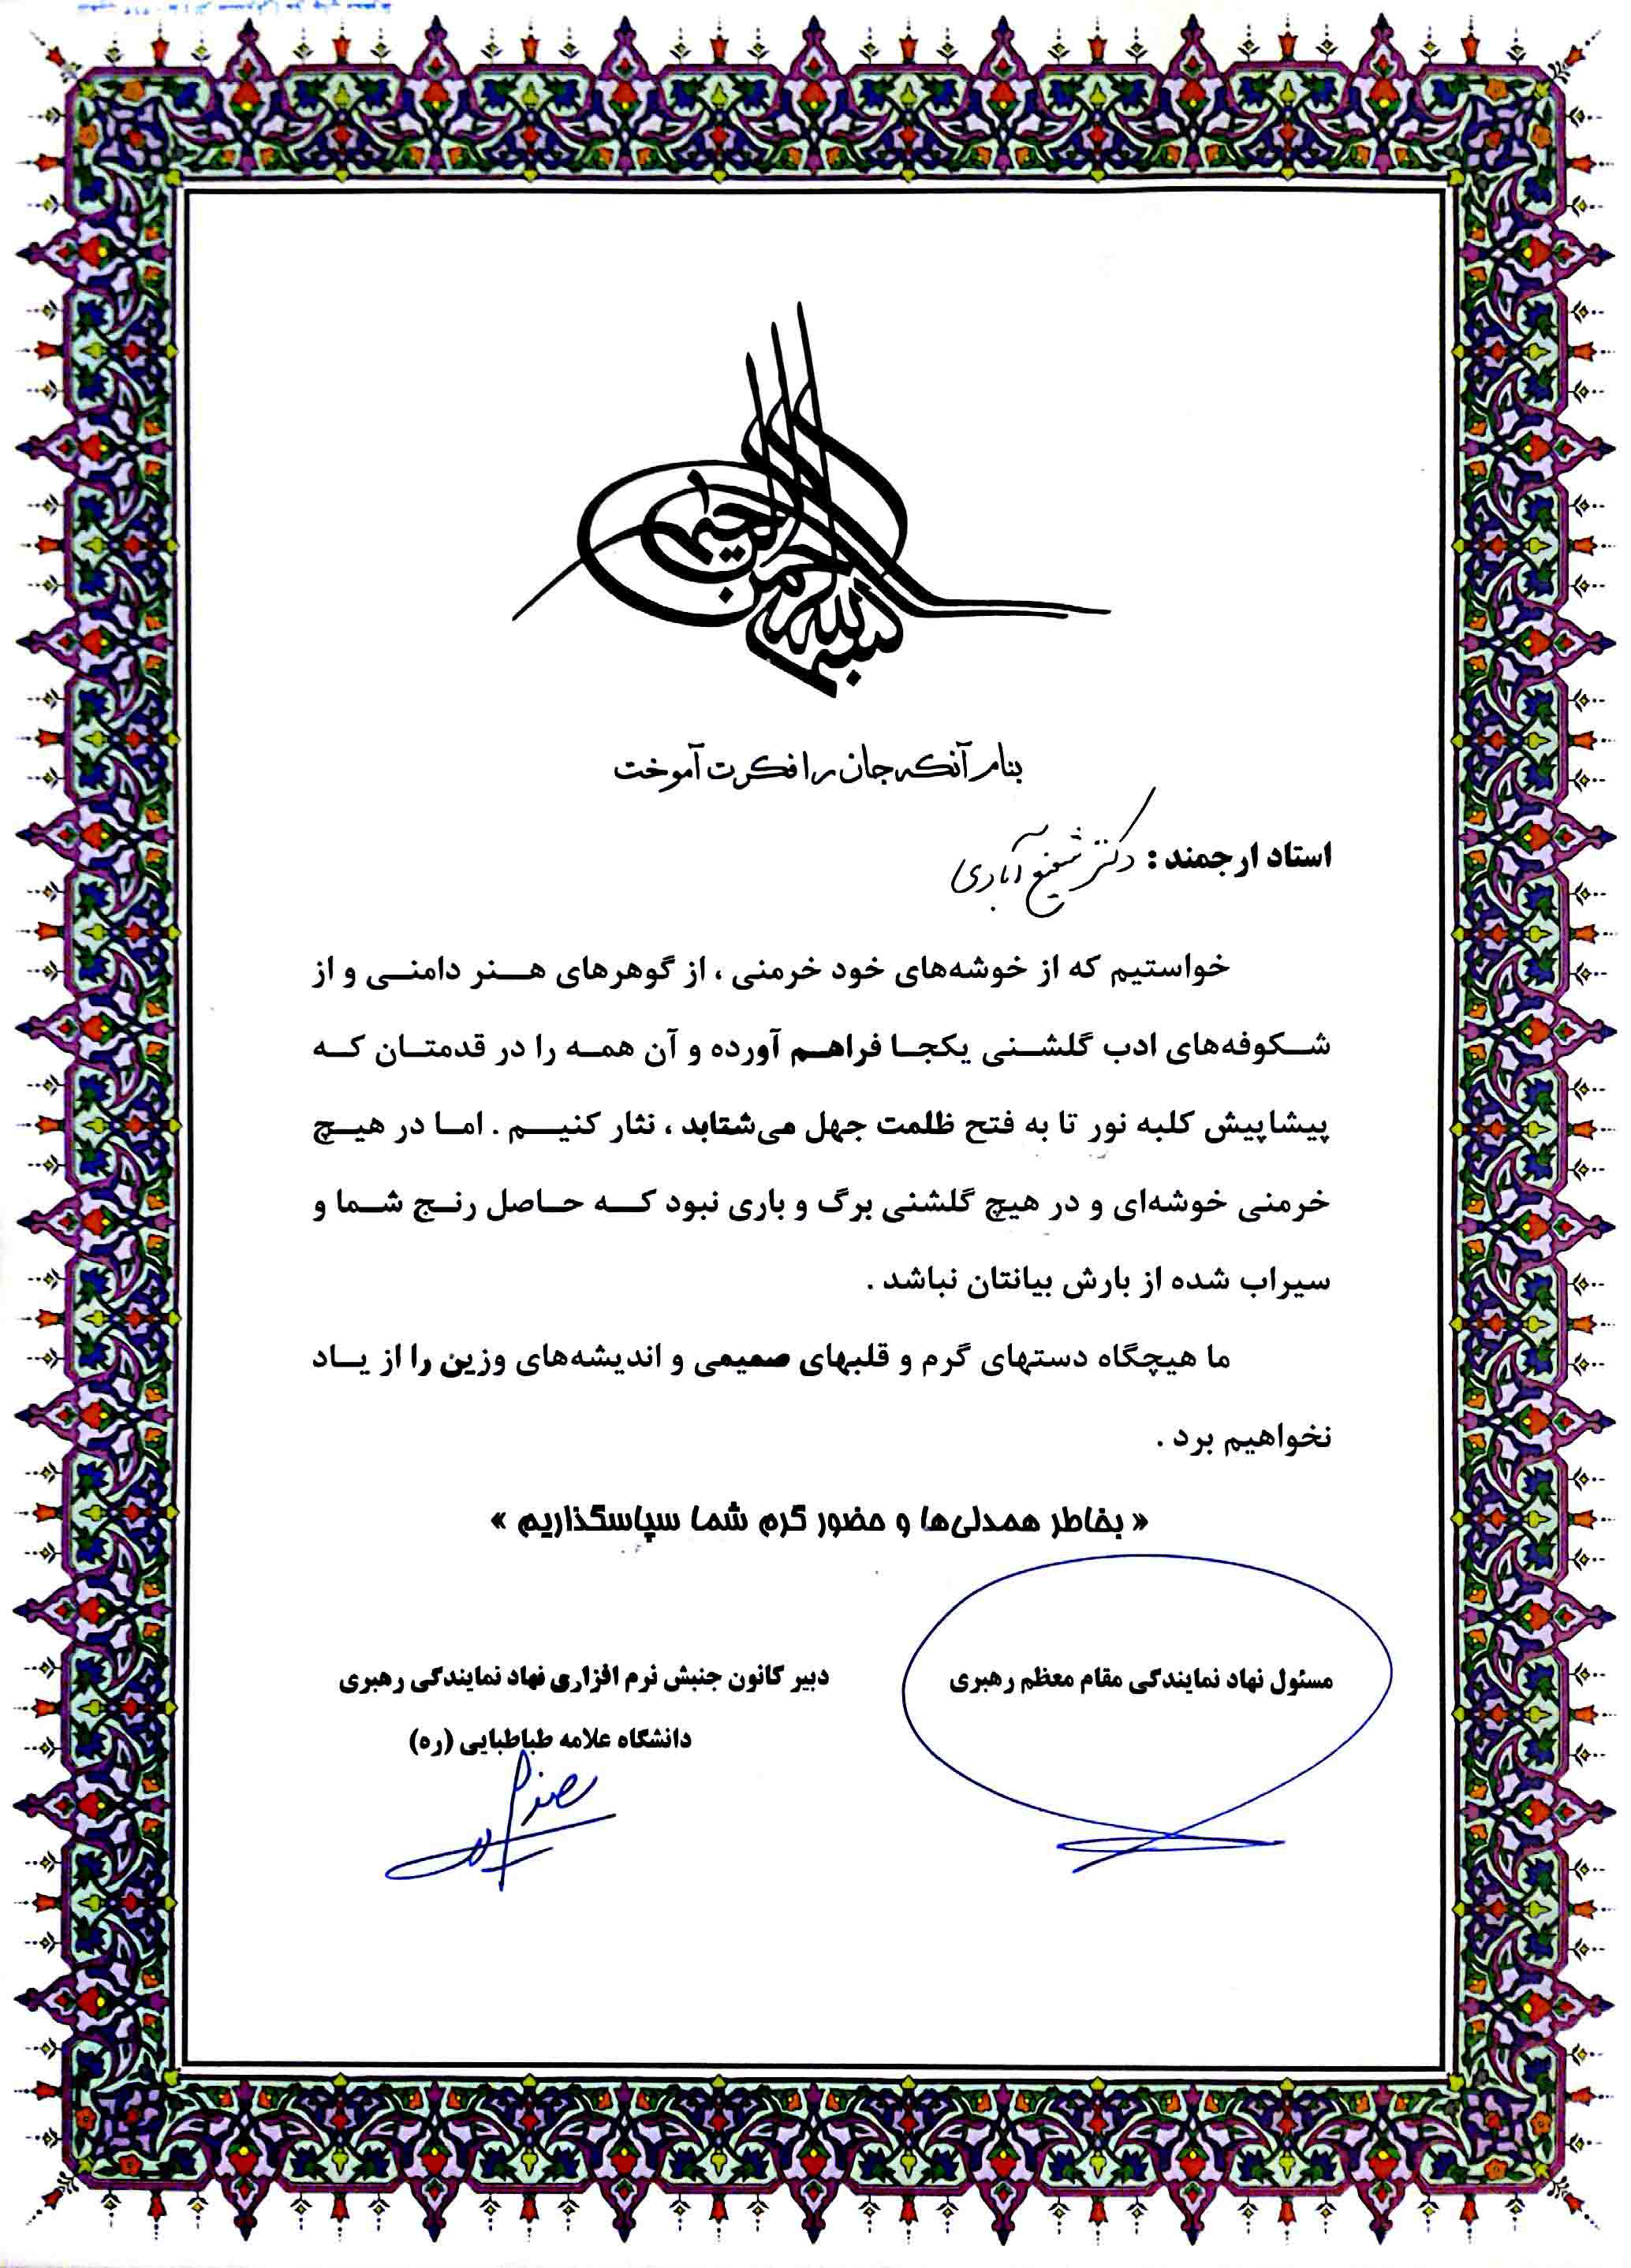 بسم الله الرحمن الرحیم
بنام آنکه جان را فکرت آموخت
استاد ارجمند : دکتر شفیع آبادی
خواستیم که از خوشه‌های خود خرمنی ، از گوهرهای هنر دامنی و از
شکوفه‌های ادب گلشنی یکجا فراهم آورده و آن همه را در قدمتان که
پیشاپیش کلبه نور تا به فتح ظلمت جهل می‌شتابد ، نثار کنیم . اما در هیچ
خرمنی خوشه‌ای و در هیچ گلشنی برگ و باری نبود که حاصل رنج شما و
سیراب شده از بارش بیانتان نباشد .
ما هیچگاه دستهای گرم و قلبهای صمیمی و اندیشه‌های وزین را از یاد
نخواهیم برد .
« بخاطر همدلی‌ها و حضور گرم شما سپاسگذاریم »
مسئول نهاد نمایندگی مقام معظم رهبری
دبیر کانون جنبش نرم افزاری نهاد نمایندگی رهبری
دانشگاه علامه طباطبایی (ره)